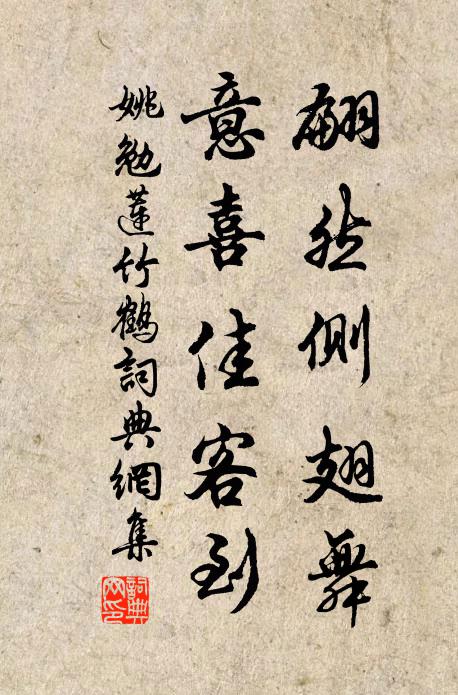 翩然側翅舞
意喜佳客到
姚勉蓮竹鶴詞典網集
詞典
網印